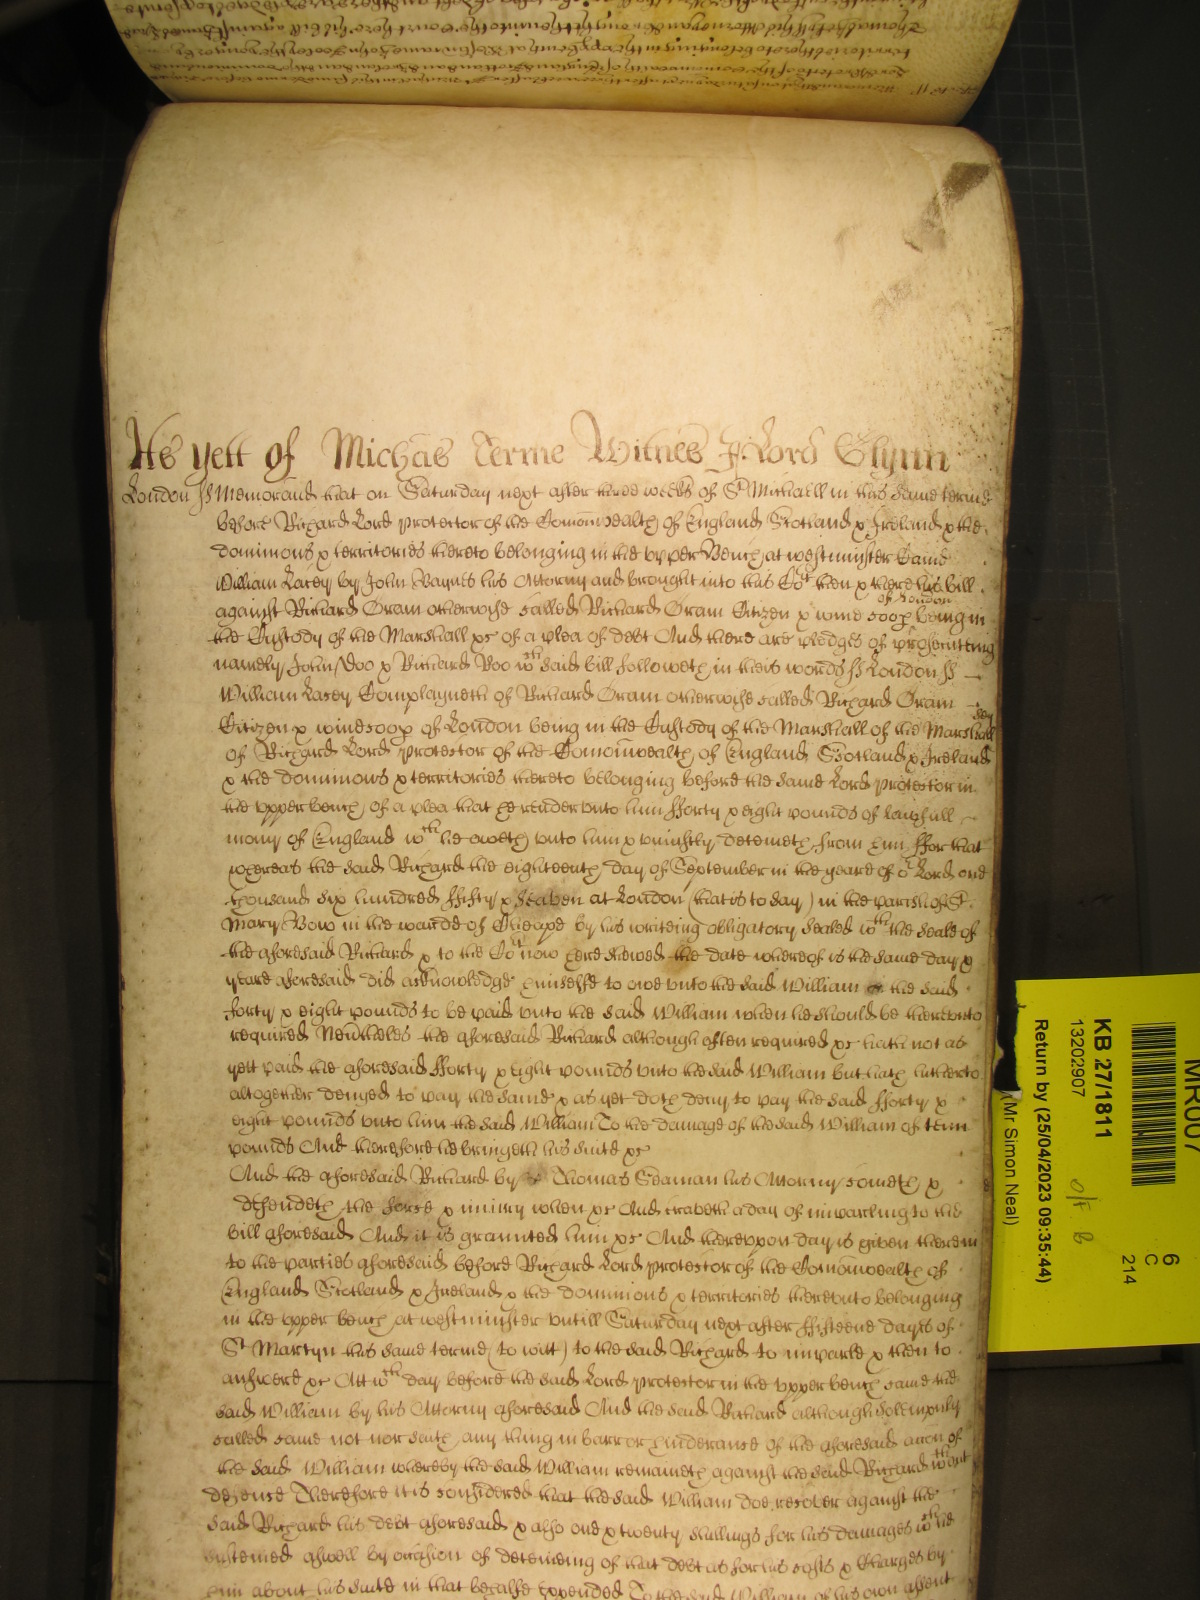 As yett of Michas Terme Witnes J. Lord Glynn
London ss Memorand that on Saturday next after three weekes of St Michaell in this same terme
before Richard Lord protector of the Comonwealth of England Scotland & Ireland & the
dominions & territories thereto belonging in the upper Bench at westminster Came
William Lacey by John Baynes his Attorny and brought into this Cort then & there his bill
against Richard Oram otherwise called Richard Oram Citizen & wine coop of London being in
the Custody of the Marshall &c of a plea of debt And there are pledges of prosecuting
namely John Doo & Richard Roo wch said bill followeth in theis words ss London ss
William Lacey Complayneth of Richard Oram otherwise called Richard Oram
Citizen & winecoop of London being in the Custody of the Marshall of the Marshallsey
of Richard Lord protector of the Comonwealth of England Scotland & Ireland
& the dominions & territories thereto belonging before the same Lord protector in
the upper bench of a plea that he render unto him fforty & eight pounds of lawfull
mony of England wch he oweth unto him & uniustly deteineth from him ffor that
whereas the said Richard the eighteenth day of September in the yeare of or Lord one
thousand six hundred ffifty & seaven at London (that is to say) in the parish of St
Mary Bow in the warde of Cheape by his writeing obligatory sealed wth the seale of
the aforesaid Richard & to the Cort now here shewed the date whereof is the same day &
yeare aforesaid did acknowledge himselfe to owe unto the said William the said
forty & eight pounds to be paid unto the said William when he should be thereunto
required Nevertheles the aforesaid Richard although often required &c hath not as
yett paid the aforesaid fforty & eight pounds unto the said William but hath hitherto
altogether denyed to pay the same & as yet doth deny to pay the said fforty &
eight pounds unto him the said William To the damage of the said William of tenn
pounds And therefore he bringeth his suite &c
And the aforesaid Richard by Thomas Seaman his Attorny cometh &
defendeth the force & iniury when &c And craveth a day of imparling to the
bill aforesaid And it is graunted him &c And thereuppon day is given therein
to the parties aforesaid before Richard Lord protector of the Comonwealth of
England Scotland & Ireland & the dominions & territories thereunto belonging
in the upper bench at westminster untill Saturday next after ffifteene dayes of
St Martyn this same terme (to witt) to the said Richard to imparle & then to
answere &c Att wch day before the said Lord protector in the upper bench came the
said William by his Attorny aforesaid And the said Richard although solempnly
called came not nor saith any thing in barr or hinderance of the aforesaid accon of
the said William whereby the said William remaineth against the said Richard wthout
defence Therefore it is considered that the said William doe recover against the
said Richard his debt aforesaid & also one & twenty shillings for his damages wch he
susteined aswell by occasion of deteineing of that debt as for his costs & Charges by
him about his suite in that behalfe Expended To the said William of his own assent
MR007
6
C
214
KB 27/1811
13202907
Return by (25/04/2023 09:35:44)
(Mr Simon Neal)